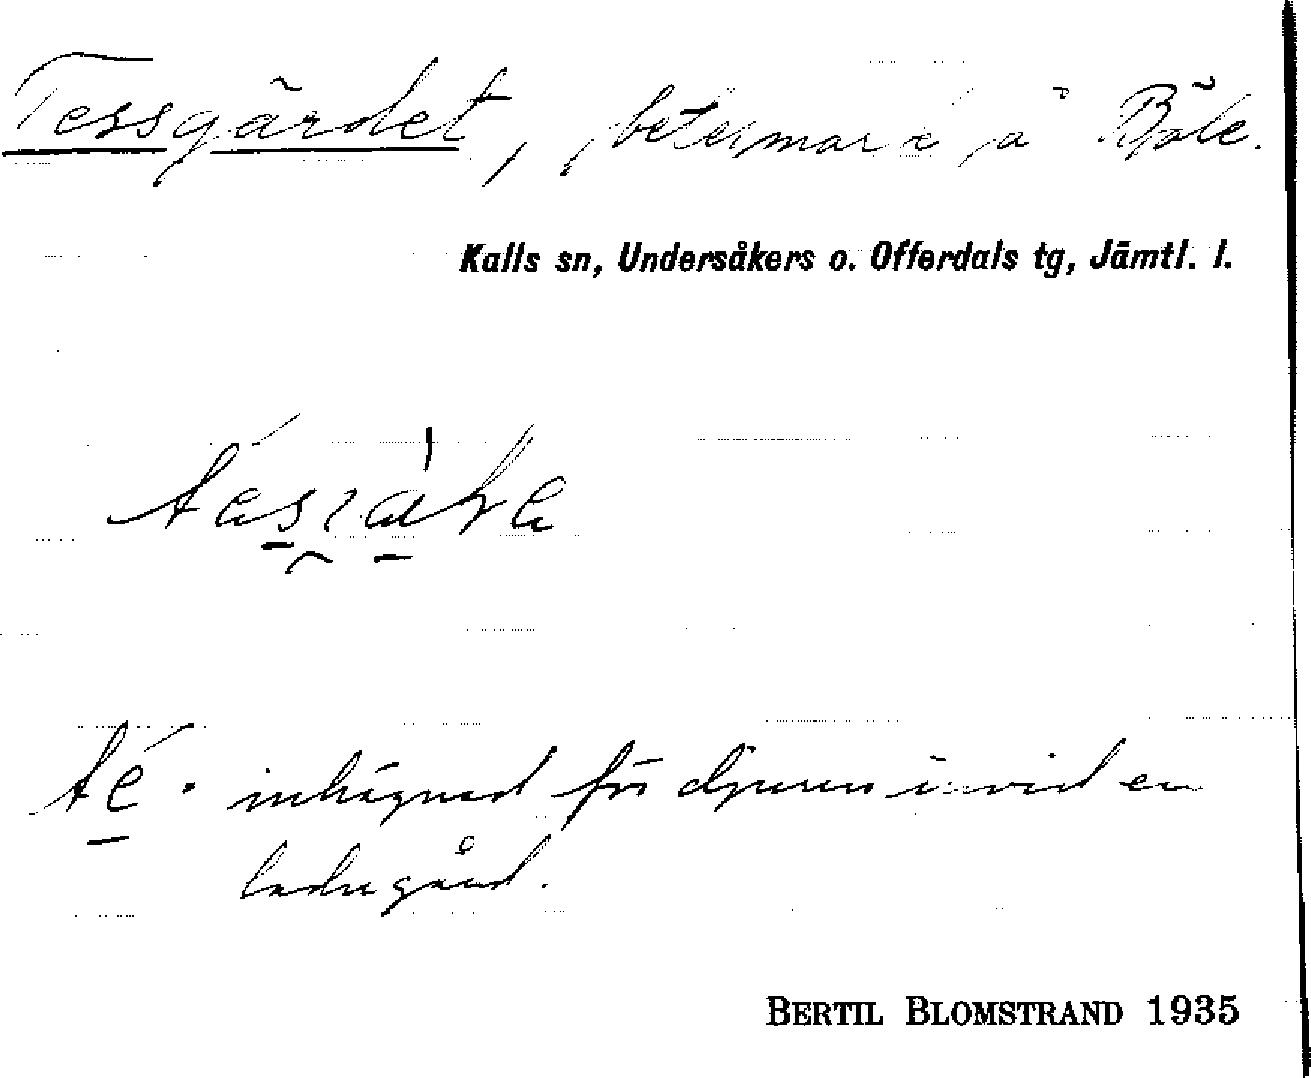 Tessgärdet, betesmark på Böle.
Kalls sn, Undersåkers o. Offerdals tg, Jämtl. l.
té. inhägnad för djuren invid en
ladugård.
BERTIL BLOMSTRAND 1935